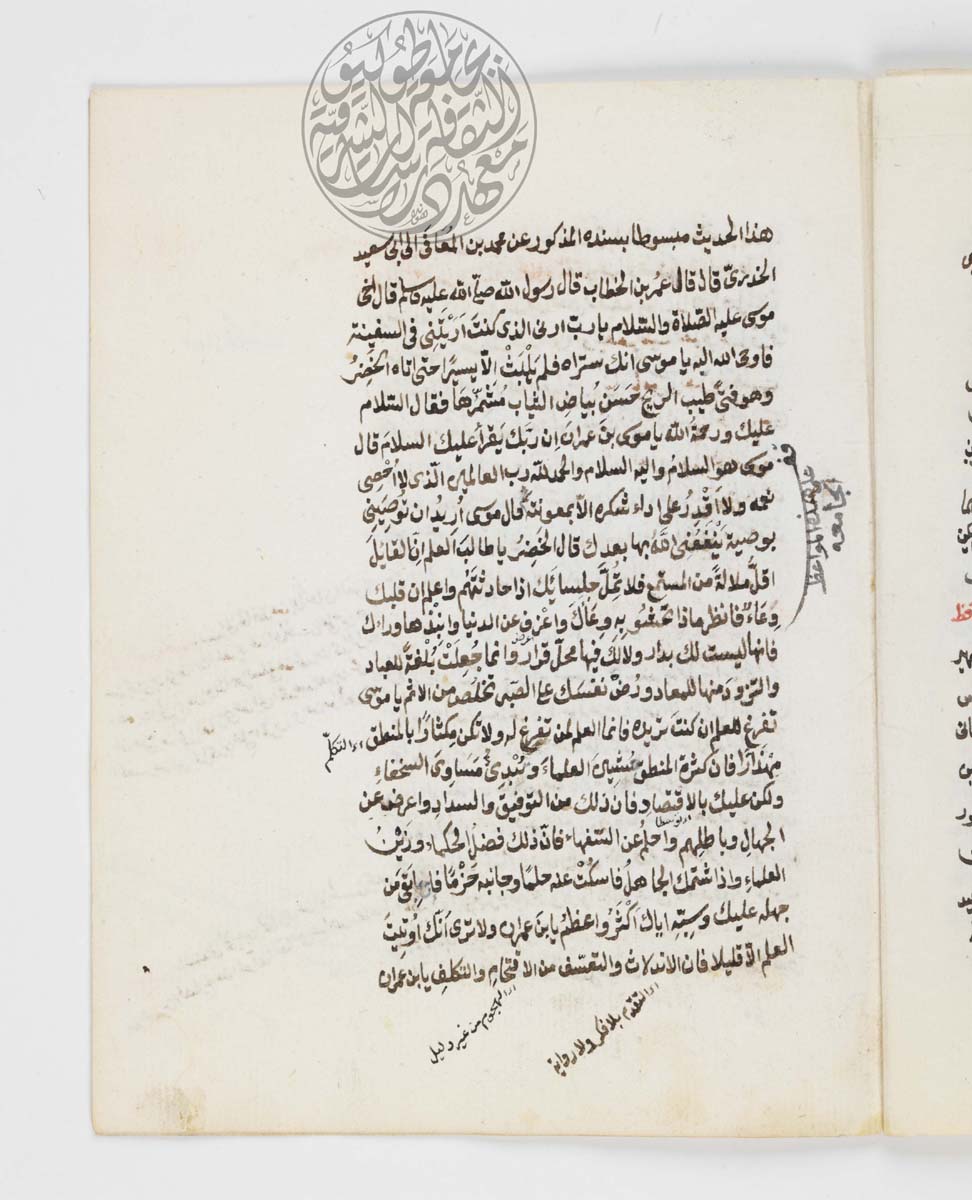 هذا الحديث مبسوطا بسنده المذكور عن محمد بن المعافى الى ابى سعيد
الخدرىّ قال قال عمر بن الخطاب قال رسول الله صلى الله عليه وسلم قال اخى
موسى عليه الصّلاة والسّلام يا ربّ ارنى الذى كنتَ اَرَيْتَنِى فى السفينة
فاوحى الله اليه يا موسى انك ستراه فلم يَلْبَثْ الّا يسيرًا حتى اتاه الخَضِرُ
وهو فتىً طيب الريح حَسَن بُياضِ الثياب مُشَمِّرُهَا فقال السّلام
عليك ورحمة الله يا موسى بن عمرانَ اِن ربّك يَقرأ عليك السلامَ قال
موسى هو السلامُ واليه السلام والحمد لله رب العالمين الّذى لا اُحْصِى
نعمه ولا اَقْدِرُ على اداء شكره الّا بمعونته قال موسى اُريدُ ان تُوصِيَنى
بوصية يَنْفَعُنى اللهُ بها بعدك قال الخَضِرُ يا طالبَ العلم اِن القايلَ
اقلُّ ملالةً من المستمع فلا تُمِلَّ جلسايَك اذا حادثْتَهُم واعلم ان قلبك
وِعَاءٌ فانظر ماذا تَحْشُو بِهِ وِعَاكَ واعْزِف عن الدنيا وانبُذها وراءك
فانها ليست لك بدار ولا لَكَ فيها محلّ قرار وانما جُعِلَتْ بُلْغَةً للعباد
والتزودَ منها للمعاد ورُضْ نفسَك على الصّبر تخلُصْ من الاثم يا موسى
تفرغ للعلم ان كنتَ تريده فانما العلم لمن تفرغ له ولا تكن مِكثارًا بالمنطق
اى التكلّم
مِهْذَارًا فان كثرة المنطق تُشِينُ العلماءَ وتُبْدِئُ مَسَاوِىَ السُخفاءِ
ولكن عليك بالاقتصاد فان ذلك من التوفيق والسداد واعرض عن
اى توسط
الجهال وباطلِهم واحلُمْ عن السّفهاء فانّ ذلك فضلُ الحكماء وزَيْنُ
العلماءِ واذا شتمك الجاهلُ فاسكُتْ عنه حلمًا وجانِبه حَزْمًا فان ما بَقِىَ من
جهله عليك وسبِّه اياك اَكْثَرُ واعظمُ يا بن عمران ولا ترى اَنَّك اُوتِيتَ
العلم الّا قليلا فان الاندلاث والتعسّف من الاقتحام والتكلف يا بن عمران
اى التقدم بلا فكر ولا رواية
اى التهجم من غير دليل
قف
على هذه المواعظ
الجامعه